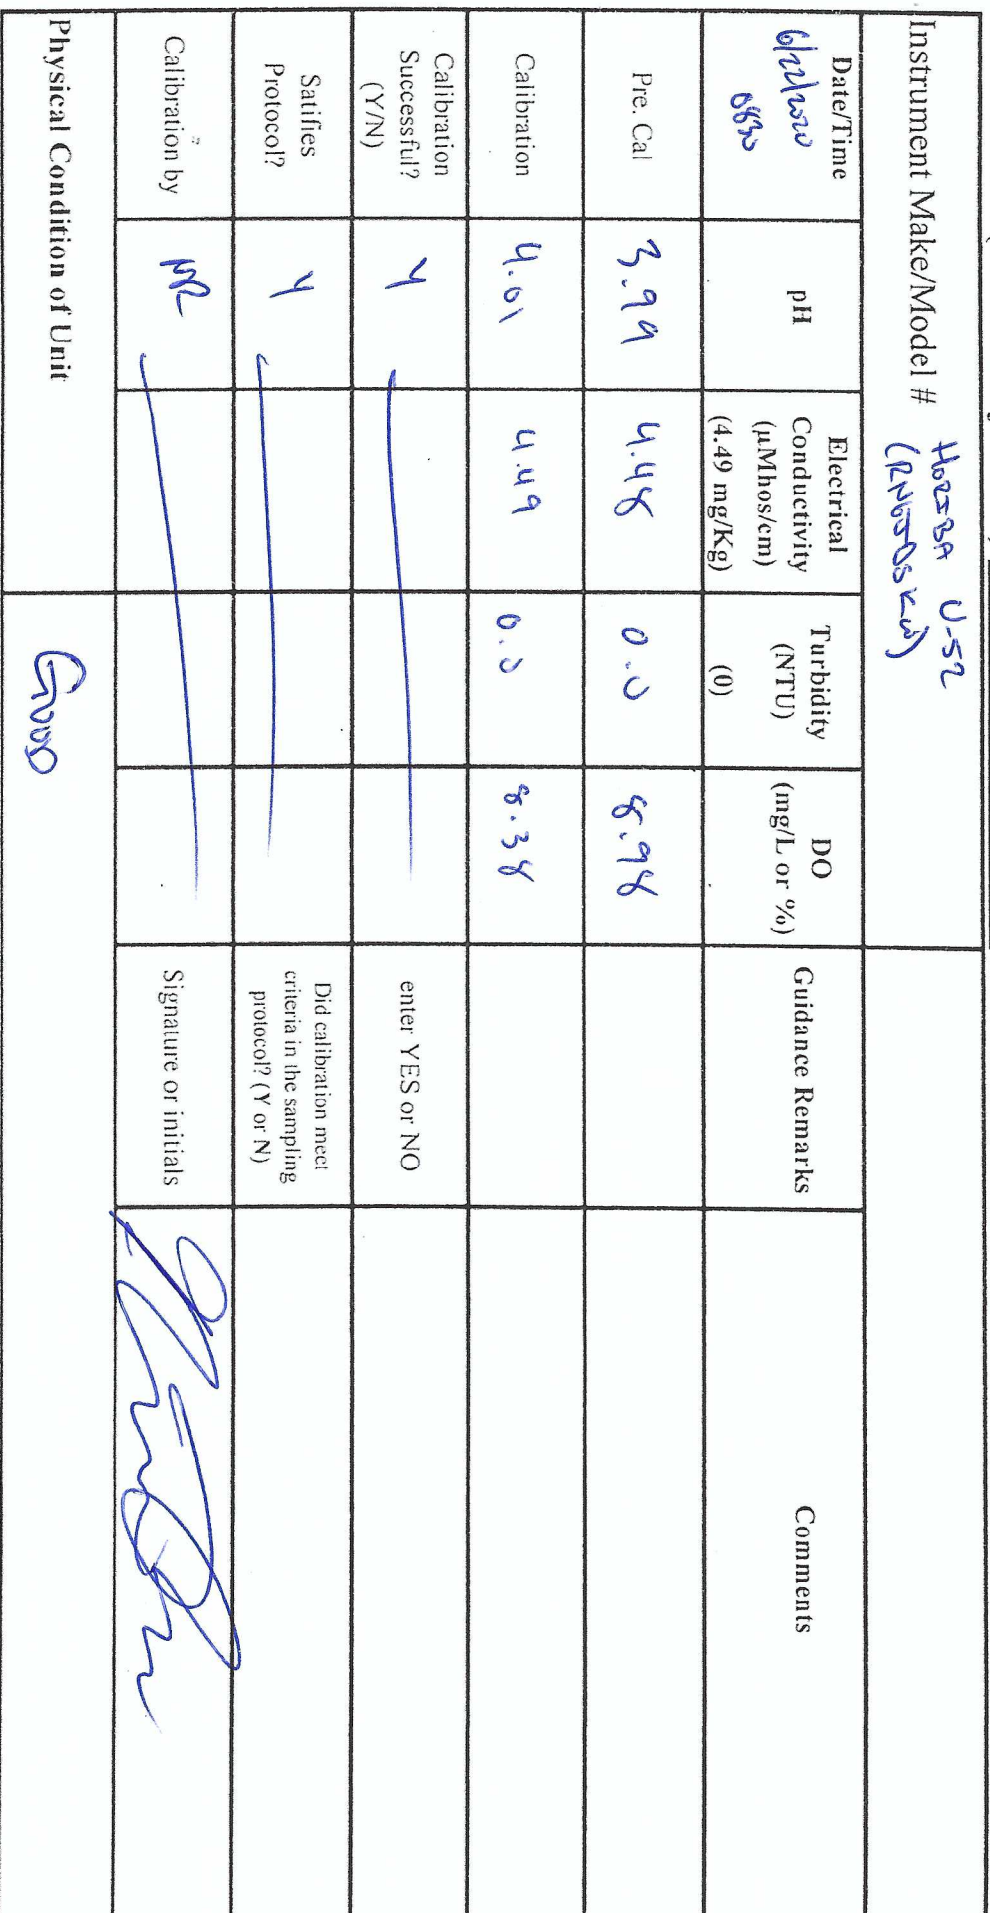 Instrument Make/Model # HORIBA U-52
Date/Time
6/22/2020
0830
pH
Electrical
Conductivity
(µMhos/cm)
(4.49 mg/Kg)
Turbidity
(NTU)
(0)
DO
(mg/L or %)
Guidance Remarks
Comments
Pre. Cal
3.99
4.48
0.0
8.98
Calibration
4.01
4.49
0.0
8.38
Calibration
Successful?
(Y/N)
Y
enter YES or NO
Satifies
Protocol?
Y
Did calibration meet
criteria in the sampling
protocol? (Y or N)
Calibration by
MR
Signature or initials
Physical Condition of Unit
GOOD